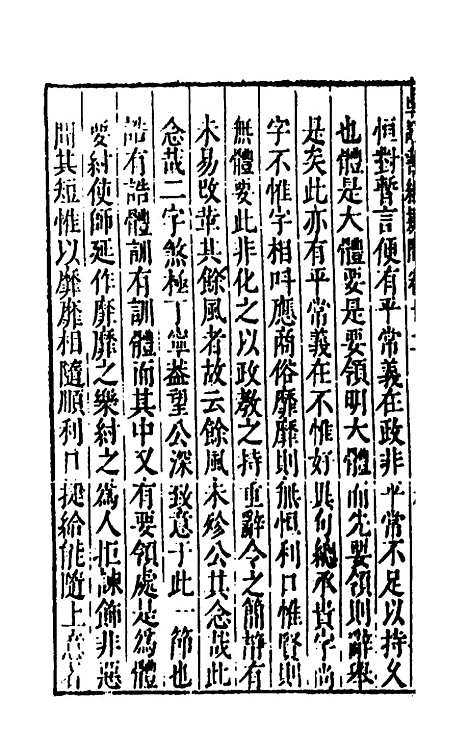 恒對暫言便有平常義在政非平常不足以持久
也體是大體要是要領明大體而先要領則辭舉
是矣此亦有平常義在不惟好異句總承貴字尚
字不惟字相呌應商俗靡靡則無恒利口惟賢則
無體要此非化之以政教之持重辭令之簡靜有
未易改革其餘風者故云餘風未殄公其念哉此
念哉二字煞極丁寧葢望公深致意于此一節也
誥有誥體訓有訓體而其中又有要領處是為體
要紂使師延作靡靡之樂紂之為人拒諫飾非惡
聞其短惟以靡靡相隨順利口捷給能隨上意者